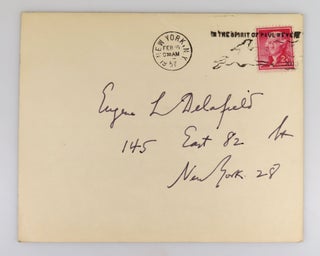 NEW YORK, N.Y.
FEB
AM
IN THE SPIRIT OF PAUL REVERE
Eugene L Delafield
145 East 82 St
New York 28